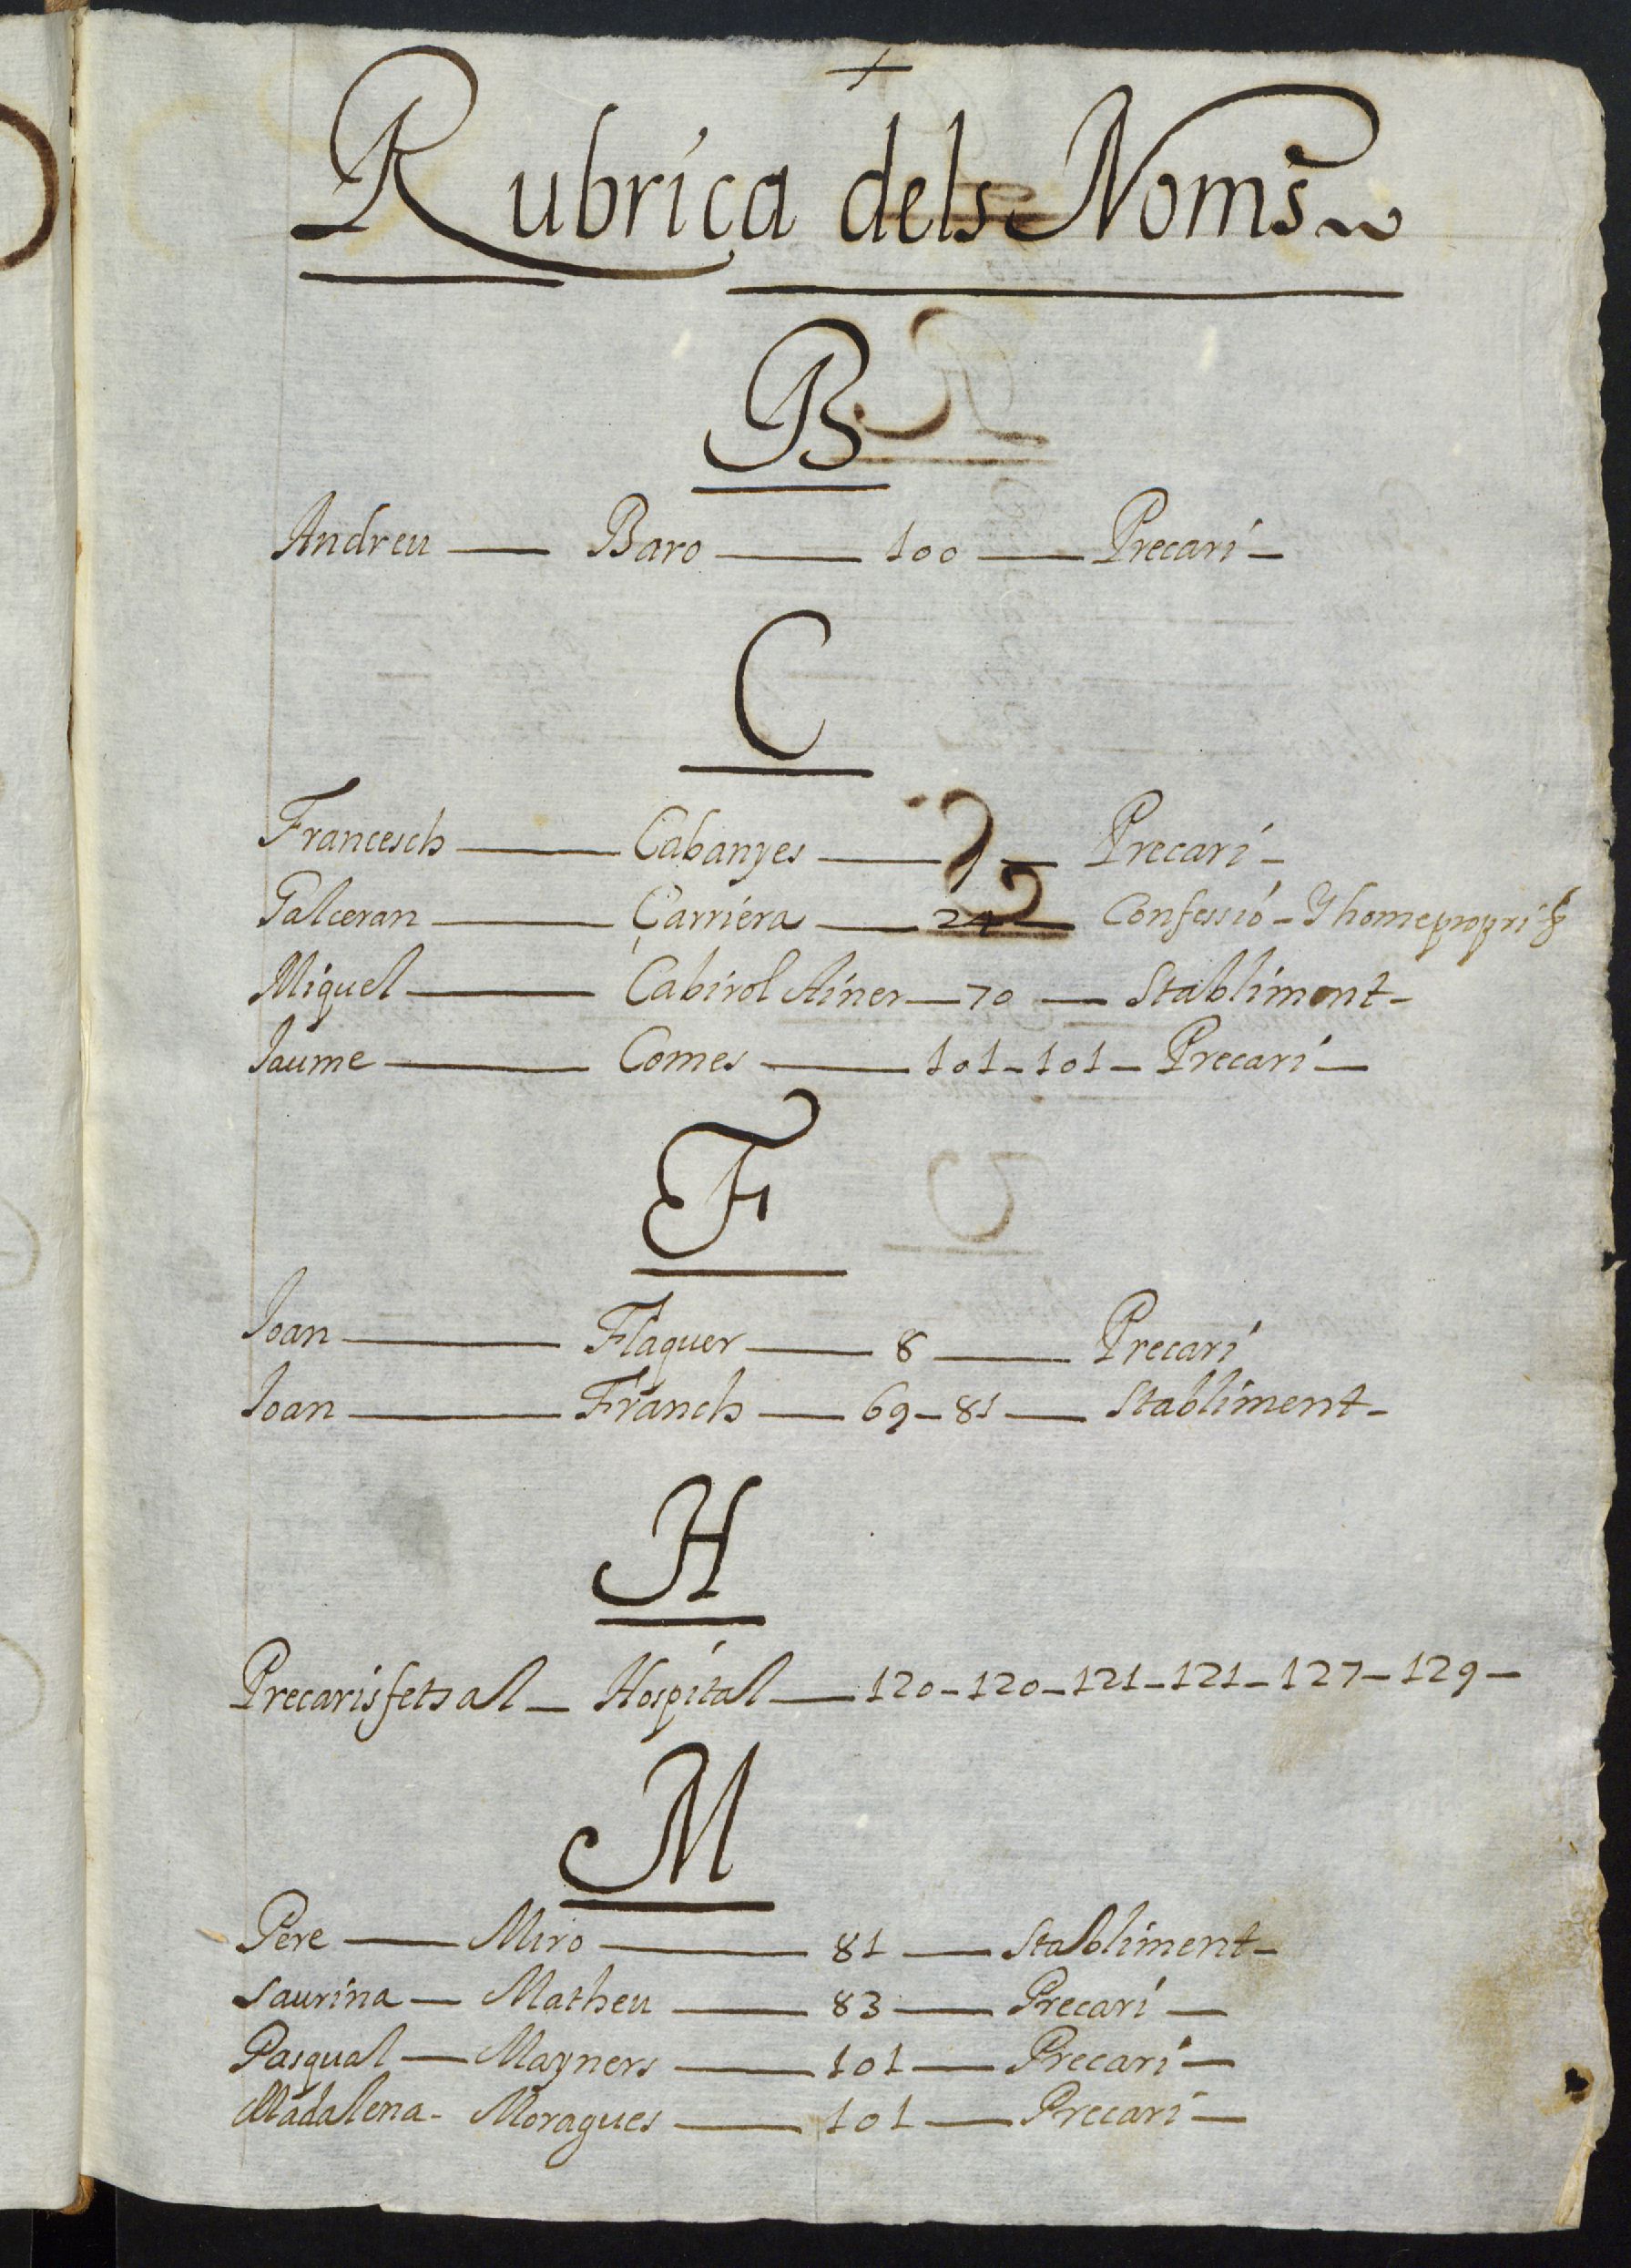 +
Rubrica dels Noms
B
Andreu — Baro — 100 — Precari —
C
Francesch — Cabanyes — — Precari —
Galceran — Carriera — 24 — Confessió — Y home propri
Miquel — Cabirol Ainer — 70 — Stabliment —
Jaume — Comes — 101 — 101 — Precari —
F
Joan — Flaquer — 8 — Precari
Joan — Franch — 69 — 81 — Stabliment —
H
Precaris fets al — Hospital — 120 — 120 — 121 — 121 — 127 — 129 —
M
Pere — Miro — 81 — Stabliment —
Saurina — Matheu — 83 — Precari —
Pasqual — Mayners — 101 — Precari —
Madalena — Moragues — 101 — Precari —